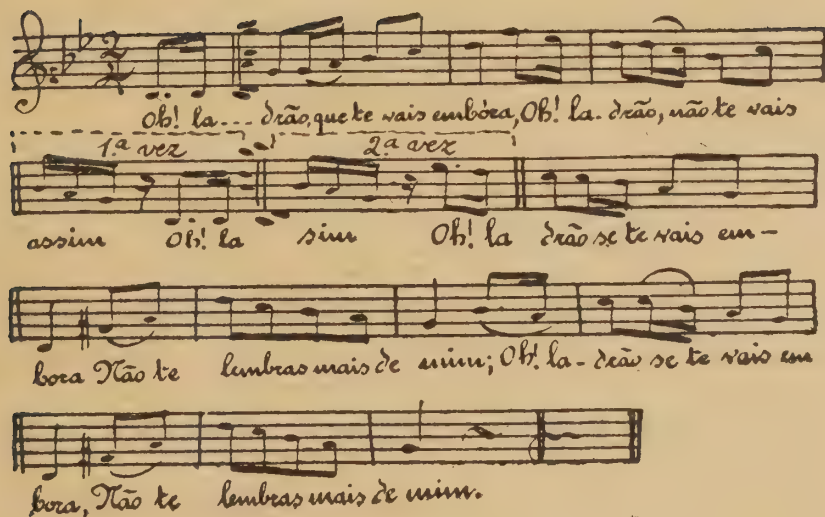 Oh! la--- drão, que te vais embóra, Oh! la- drão, não te vais
1.ª vez 2.ª vez
assim Oh! la sim Oh! la drão se te vais em-
bora Não te lembras mais de mim; Oh! la- drão se te vais em
bora, Não te lembras mais de mim.